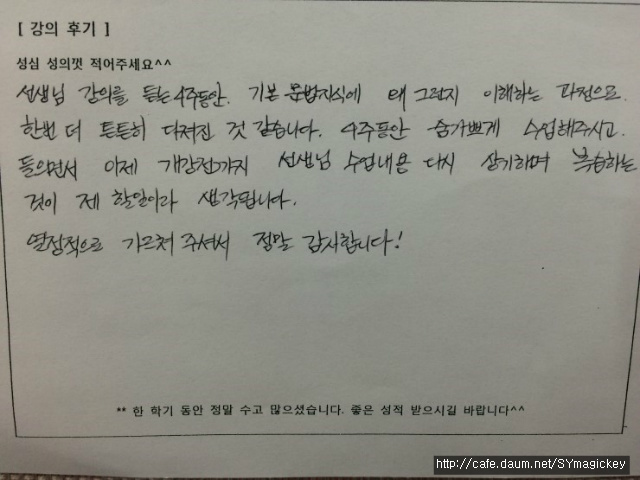 [ 강의 후기 ]
성심 성의껏 적어주세요^^
선생님 강의를 듣는 4주동안. 기본 문법지식에 왜 그런지 이해하는 과정으로
한번 더 튼튼히 다져진 것 같습니다. 4주동안 숨가쁘게 수업해주시고.
들으면서 이제 개강전까지 선생님 수업내용 다시 상기하며 복습하는
것이 제 할일이라 생각됩니다.
열정적으로 가르쳐 주셔서 정말 감사합니다!
** 한 학기 동안 정말 수고 많으셨습니다. 좋은 성적 받으시길 바랍니다^^
http://cafe.daum.net/SYmagickey